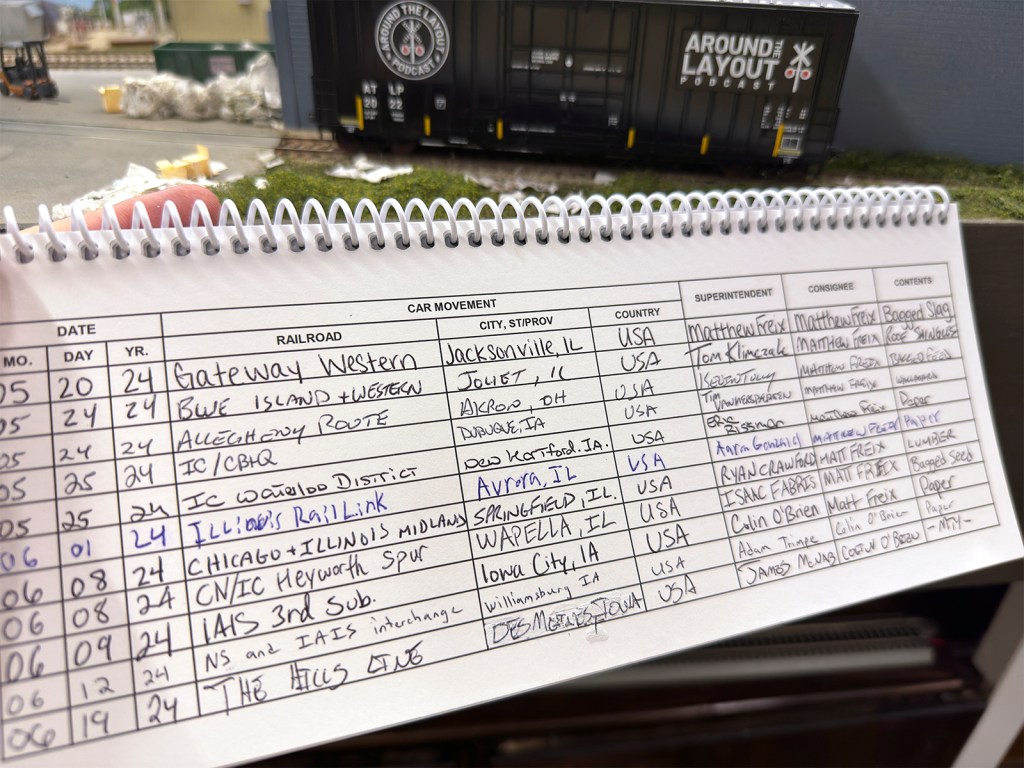 AROUND THE LAYOUT
PODCAST
AROUND THE
LAYOUT
PODCAST
AT LP
20 22
DATE CAR MOVEMENT SUPERINTENDENT CONSIGNEE CONTENTS
MO. DAY YR. RAILROAD CITY, ST/PROV COUNTRY
05 20 24 Gateway Western Jacksonville, IL USA Matthew Freix Matthew Freix Bagged Slag
05 24 24 BLUE ISLAND + WESTERN JOLIET, IL USA Tom Klimczak MATTHEW FREIX
05 24 24 ALLEGHENY ROUTE AKRON, OH USA MATTHEW FREIX
05 25 24 IC/CB+Q DUBUQUE, IA USA Tim MATTHEW FREIX
05 25 24 IC Waterloo District New Hartford. IA. USA Matthew Freix Paper
06 01 24 Illinois RailLink Aurora, IL USA Aaron Gonzalez MATTHEW FREIX Paper
06 08 24 CHICAGO + ILLINOIS MIDLAND SPRINGFIELD, IL. USA RYAN CRAWFORD MATT FREIX LUMBER
06 08 24 CN/IC Heyworth Spur WAPELLA, IL USA ISAAC FABRIS MATT FREIX Bagged Seed
06 09 24 IAIS 3rd Sub. Iowa City, IA USA Colin O'Brien Matt Freix Paper
06 12 24 NS and IAIS interchange Williamsburg IA USA Adam Colin O'Brien Paper
06 19 24 THE HILLS LINE DES MOINES, IOWA USA JAMES MCNAB COLIN O'BRIEN - MTY -